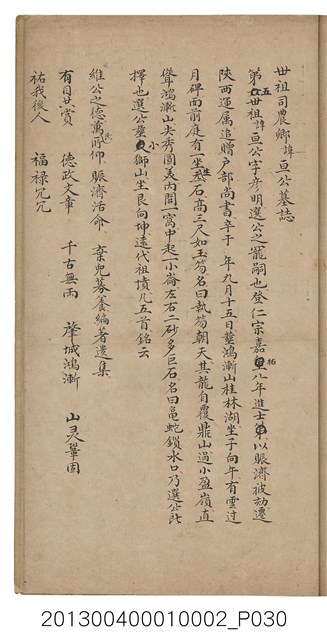 世祖司農卿諱亘公墓誌
第五世祖諱亘公字彥明選公之寵嗣也登仁宗嘉祐八年進士第以賑濟被劾遷
陝西運属追贈户部尚書辛于 年九月十五日葬鴻漸山桂林湖坐子向午有雲过
月碑面前庭有一坐生石高三尺如玉笏名曰執笏朝天其龍自覆鼎山過小盈嶺直
聳鴻漸山尖秀圓美内開一窩中起一小崙左右二砂多巨石名曰龜蛇鎖水口乃選公所
擇也選公葬小獅山坐艮向坤遠代祖墳凡五首銘云
維公之德萬民所仰 賑濟活命 棄児募養編著遺集
有目共賞 德政文章 千古無両 肇城鴻漸 山灵鞏固
祐我後人 福禄冗冗
201300400010002_P030